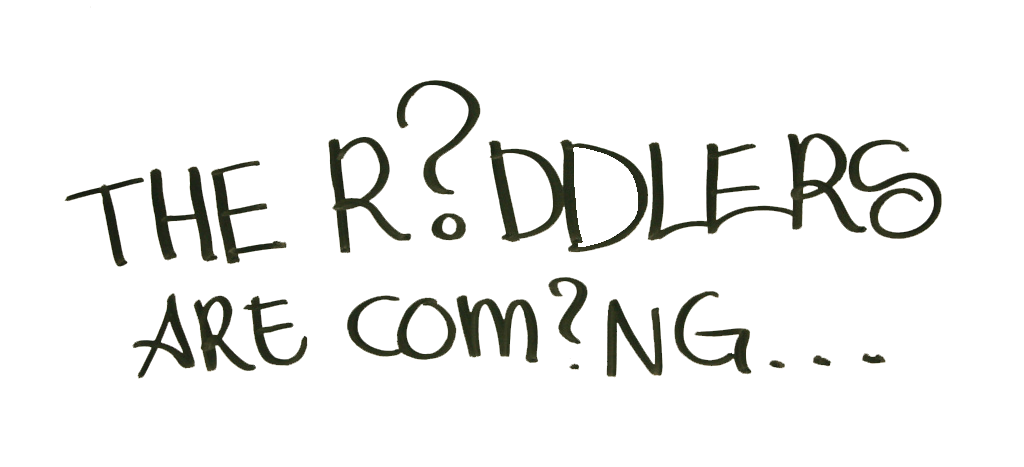 THE R?DDLERS
ARE COM?NG...